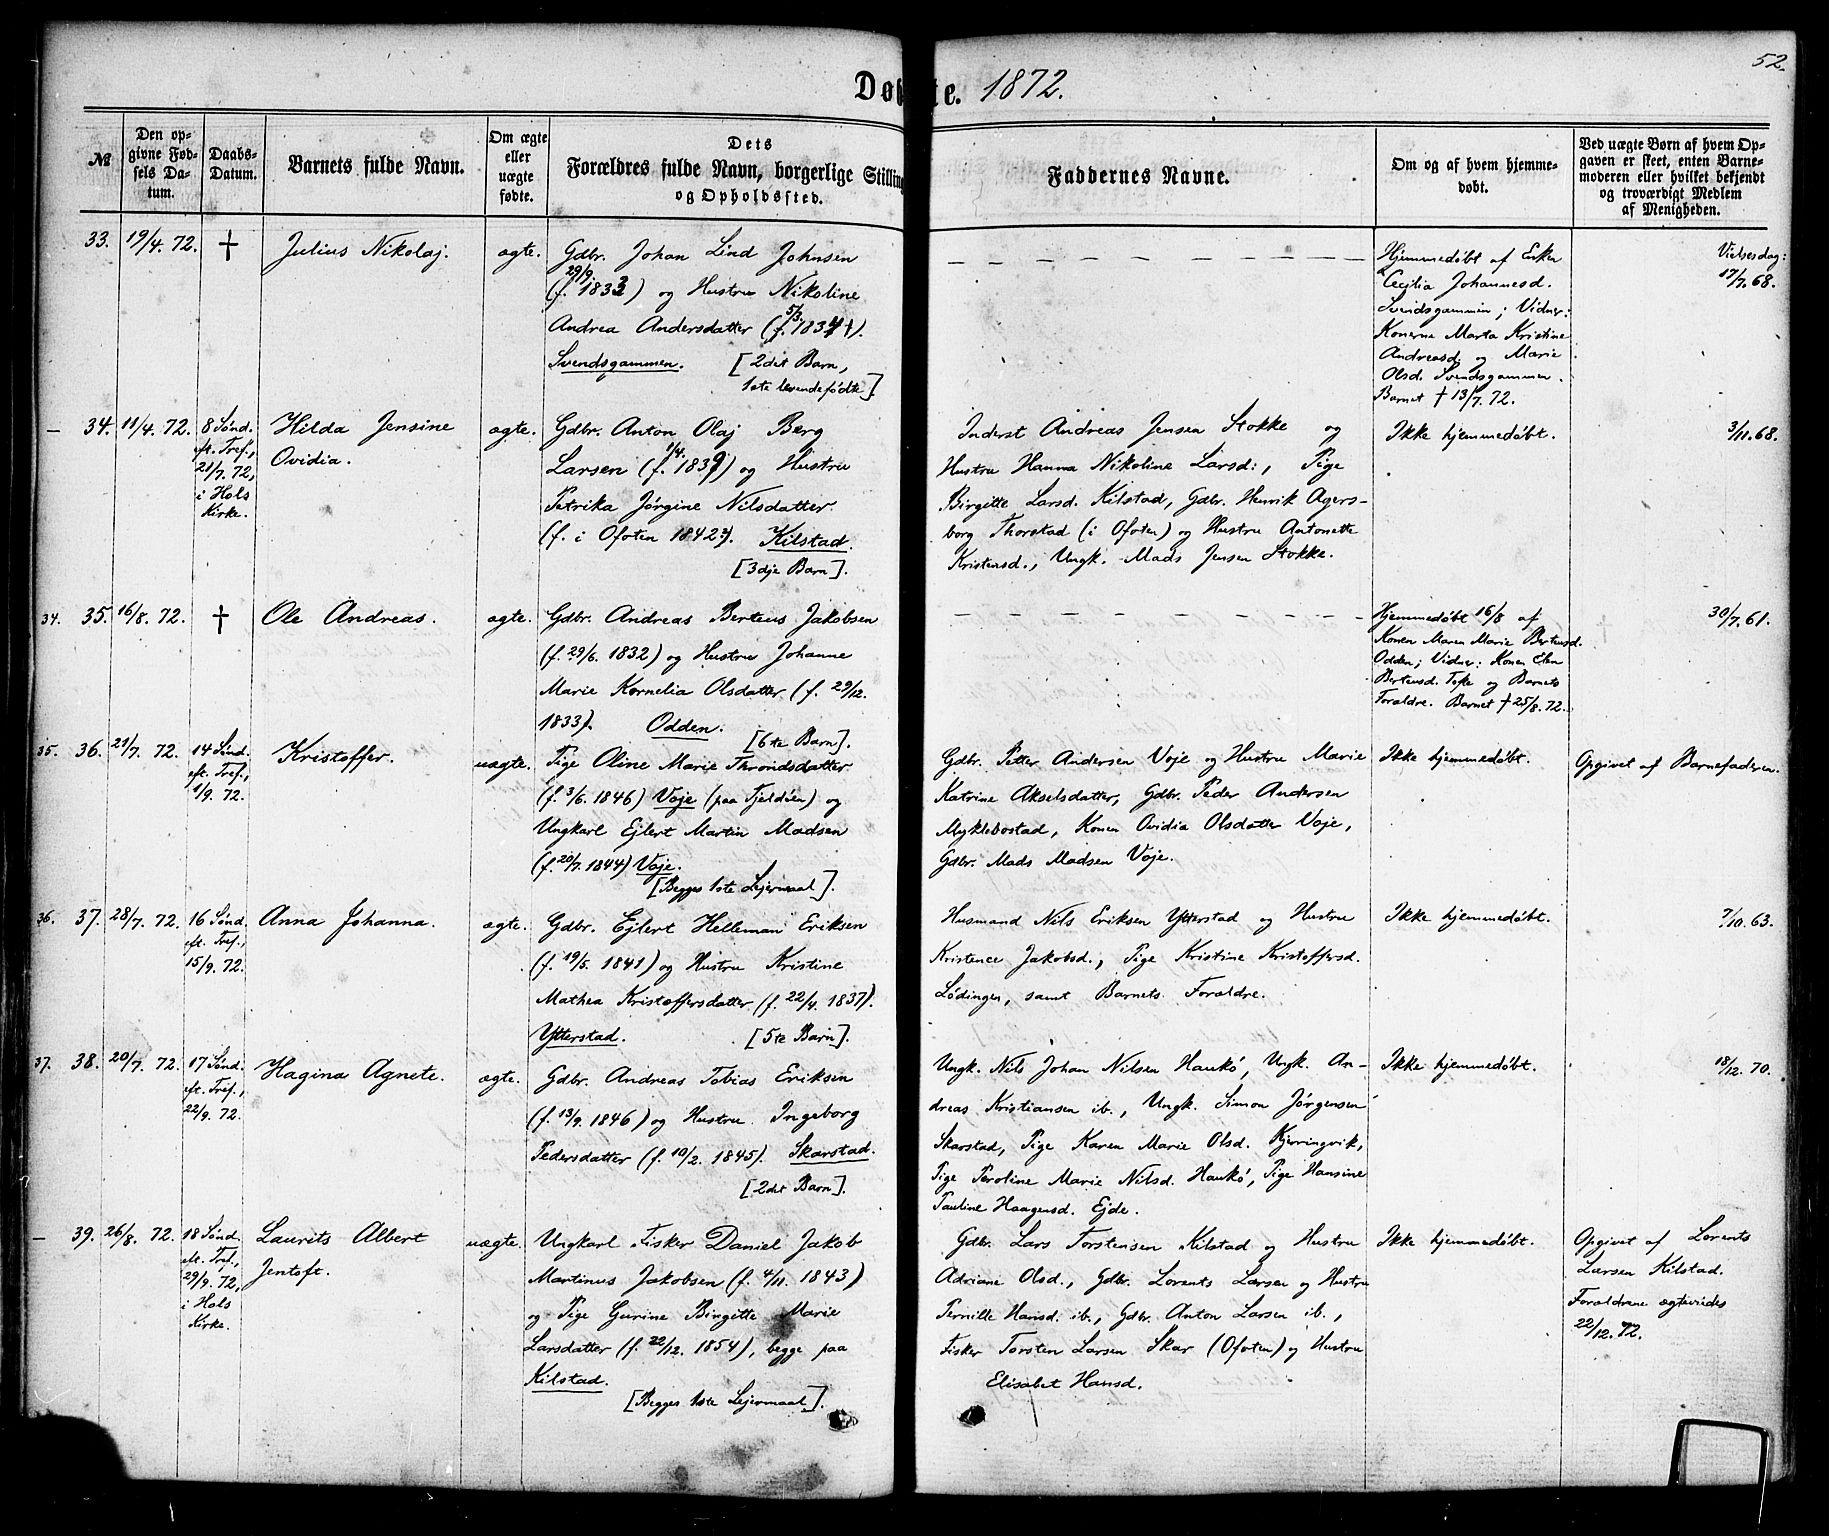 52.
Døbte. 1872.
№
Den opgivne Fødsels Datum.
Daabs-Datum.
Barnets fulde Navn.
Om ægte eller uægte fødte.
Dets Forældres fulde Navn, borgerlige Stilling og Opholdssted.
Faddernes Navne.
Om og af hvem hjemmedøbt.
Ved uægte Børn af hvem Opgaven er skeet, enten Barnemoderen eller hvilket bekjendt og troværdigt Medlem af Menigheden.
33. 19/4. 72. †
Julius Nikolaj.
ægte.
Gdbr. Johan Lind Johnsen
(f. 29/9. 1833) og Hustru Nikoline
Andrea Andersdatter (f. 5/3. 1834).
Svendsgammen. [2det Barn,
1ste levendefødte].
Hjemmedøbt af Enken
Cecilia Johannesd.
Svendsgammen; Vidner:
Konerne Marta Kristine
Andreasd. og Marie
Olsd. Svendsgammen.
Barnet † 13/7. 72.
Vielsesdag:
17/7. 68.
— 34. 11/4. 72.
8 Sønd.
eft. Tref.,
21/7. 72,
i Hols
Kirke.
Hilda Jensine
Ovidia.
ægte.
Gdbr. Anton Olaj Berg
Larsen (f. 1/4. 1839) og Hustru
Petrika Jørgine Nilsdatter
(f. i Ofoten 1842?). Kilstad.
[3dje Barn].
Inderst Andreas Jensen Stokke og
Hustru Hanna Nikoline Larsd., Pige
Birgitte Larsd. Kilstad, Gdbr. Henrik Agers-
borg Thorstad (i Ofoten) og Hustru Antonette
Kristensd., Ungk. Mads Jensen Stokke.
Ikke hjemmedøbt.
3/11. 68.
34. 35. 16/8. 72. †
Ole Andreas.
ægte.
Gdbr. Andreas Berteus Jakobsen
(f. 29/6. 1832) og Hustru Johanne
Marie Kornelia Olsdatter (f. 29/12.
1833). Odden.
[6te Barn].
Hjemmedøbt 16/8 af
Konen Maren Marie Bertensd.
Odden; Vidner: Konen Elen
Bertensd. Tofte og Barnets
Forældre. Barnet † 25/8. 72.
30/7. 61.
35. 36. 21/7. 72.
14 Sønd.
eft. Tref.,
1/9. 72.
Kristoffer.
uægte.
Pige Oline Marie Throndsdatter
(f. 3/6. 1846) Voje (paa Tjeldøen) og
Ungkarl Ejlert Martin Madsen
(f. 20/7. 1844) Voje.
[Begges 1ste Lejermaal].
Gdbr. Petter Andersen Voje og Hustru Marie
Katrine Akselsdatter, Gdbr. Peder Andersen
Myklebostad, Konen Ovidia Olsdatter Voje,
Gdbr. Mads Madsen Voje.
Ikke hjemmedøbt.
Opgivet af Barnefaderen.
36. 37. 28/7. 72.
16 Sønd.
eft. Tref.,
15/9. 72.
Anna Johanna.
ægte.
Gdbr. Ejlert Helleman Eriksen
(f. 19/5. 1841) og Hustru Kristine
Mathea Kristoffersdatter (f. 22/4. 1837).
Ytterstad. [5te Barn].
Husmand Nils Eriksen Ytterstad og Hustru
Kristence Jakobsd., Pige Kristine Kristoffersd.
Lødingen, samt Barnets Forældre.
Ikke hjemmedøbt.
7/10. 63.
37. 38. 20/7. 72.
17 Sønd.
eft. Tref.,
22/9. 72.
Hagina Agnete.
ægte.
Gdbr. Andreas Tobias Eriksen
(f. 13/9. 1846) og Hustru Ingeborg
Pedersdatter (f. 10/2. 1845). Skarstad.
[2det Barn].
Ungk. Nils Johan Nilsen Haukø, Ungk. An-
dreas Kristiansen ib., Ungk. Simon Jørgensen
Skarstad, Pige Karen Marie Olsd. Kjerringvik,
Pige Peroline Marie Nilsd. Haukø, Pige Hansine
Pauline Haagensd. Ejde.
Ikke hjemmedøbt.
18/12. 70.
— 39. 26/8. 72.
18 Sønd.
eft. Tref.,
29/9. 72,
i Hols
Kirke.
Laurits Albert
Jentoft.
uægte.
Ungkarl Fisker Daniel Jakob
Martinus Jakobsen (f. 4/11. 1843)
og Pige Gurine Birgitte Marie
Larsdatter (f. 22/12. 1854), begge paa
Kilstad.
[Begges 1ste Lejermaal].
Gdbr. Lars Torstensen Kilstad og Hustru
Adriane Olsd., Gdbr. Lorents Larsen og Hustru
Pernille Hansd. ib., Gdbr. Anton Larsen ib.,
Fisker Torsten Larsen Skar (Ofoten) og Hustru
Elisabet Hansd.
Ikke hjemmedøbt.
Opgivet af Lorents
Larsen Kilstad.
Forældrene ægteviedes
22/12. 72.